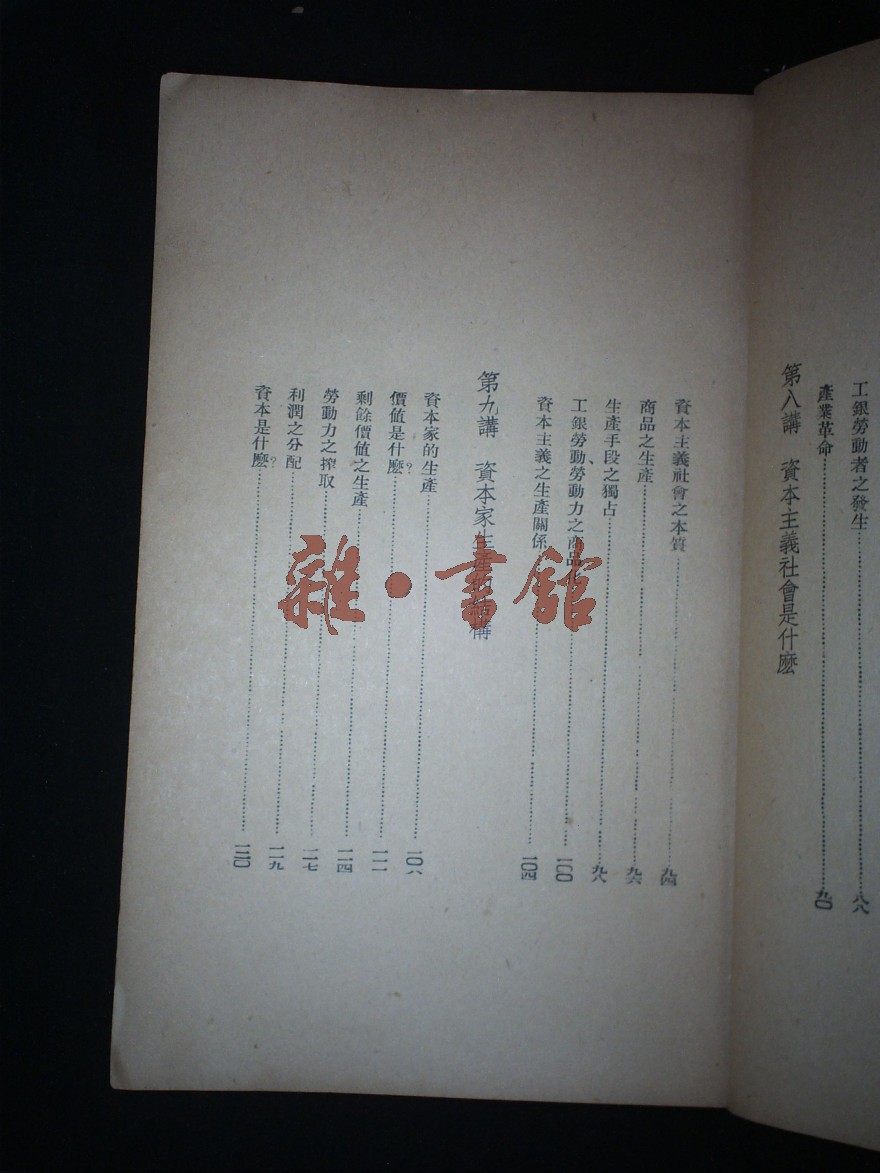 工銀勞動者之發生……八八
產業革命……九〇
第八講　資本主義社會是什麽
資本主義社會之本質……九四
商品之生產……九六
生產手段之獨占……九八
工銀勞動、勞動力之商品……一〇〇
資本主義之生產關係……一〇四
第九講　資本家生產的結構
資本家的生產……一〇六
價值是什麽？……一一一
剩餘價值之生產……一一四
勞動力之搾取……一一七
利潤之分配……一一九
資本是什麽？……一二〇
雜·書館